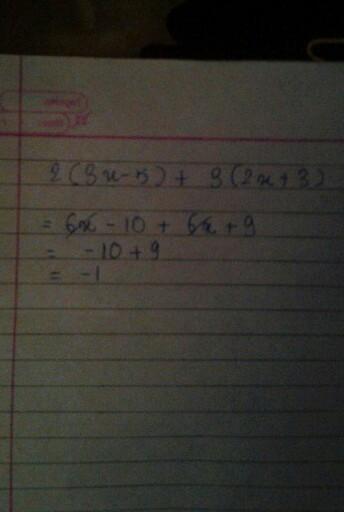 2(3x-5) + 3(2x+3)
= 6x - 10 + 6x + 9
= -10 + 9
= -1